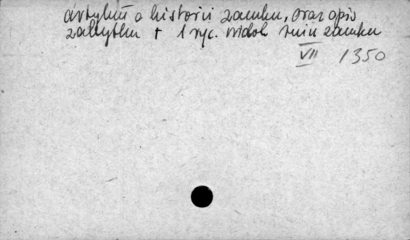 artykuł o historii zamku, oraz opis
zabytku + 1 ryc. widok ruin zamku
VII 1350